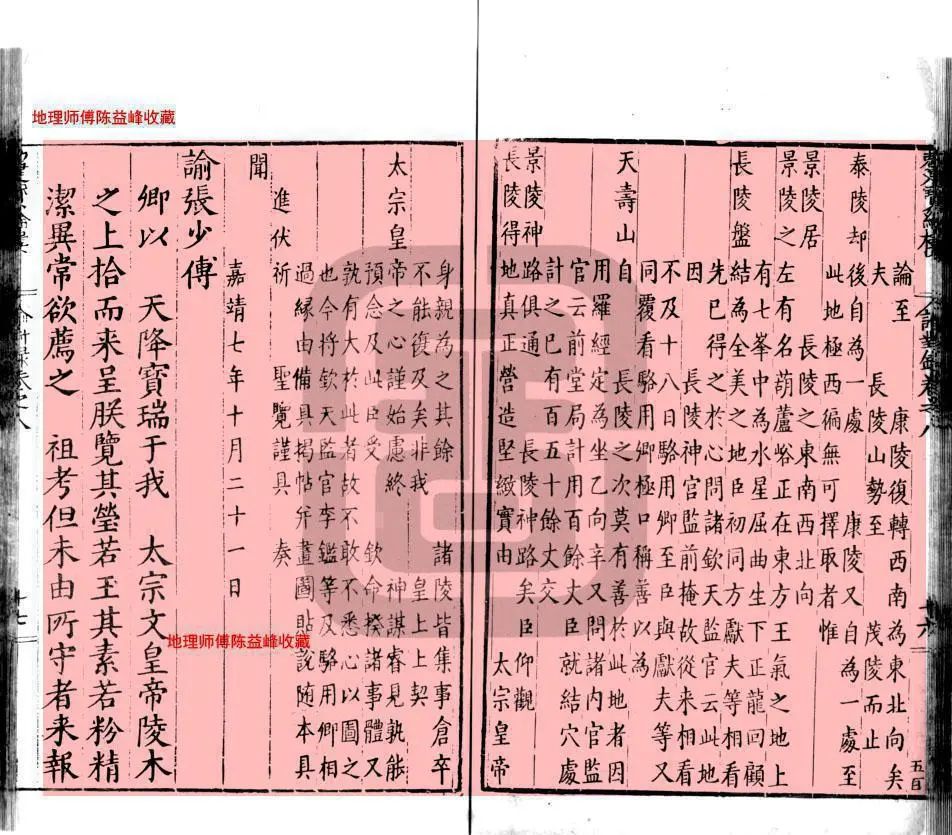 地理师傅陈益峰收藏
論至 康陵復轉西南為東北向矣
夫 長陵山勢至 茂陵而止
泰陵却後自為一處 康陵又自為一處至
此地極西徧無可擇取者惟
景陵居 長陵之東南西北向
景陵之左有名葫蘆峪正在東方王氣之地上
有七峯中為水星屈曲生下正龍回顧
長陵盤結為全美之地臣初同方獻夫等相看
先已得之於心問諸欽天監官云此地
因 長陵神官監前掩故從來相看
不及十八日駱用卿至臣與獻夫等又
同覆看駱用卿極口稱善以為
天壽山自 長陵之次莫有善於此地者因
用羅經定為坐乙向辛又問諸內官監
官云前堂局計用百餘丈臣 就結穴處
計之已有百五十餘丈交
景陵神路俱通 長陵神路矣臣 仰觀
長陵得地真正營造堅緻實由 太宗皇帝
身親為之其餘 諸陵皆集事倉卒
不能復及矣非我 皇上上契
太宗皇帝之心謹始慮終 神謀睿見孰能
預念及此臣受 欽命揆諸事體又
孰有大於此者故不敢不悉心以圖之
也今將欽天監官李鑑等及駱用卿相
過緣由備具揭帖并畫圖貼說随本具
進伏祈 聖覽謹具 奏
聞
嘉靖七年十月二十一日
諭張少傅
卿以 天降寶瑞于我 太宗文皇帝陵木
之上拾而来呈朕覽其瑩若玉其素若粉精
潔異常欲薦之 祖考但未由所守者来報
地理师傅陈益峰收藏